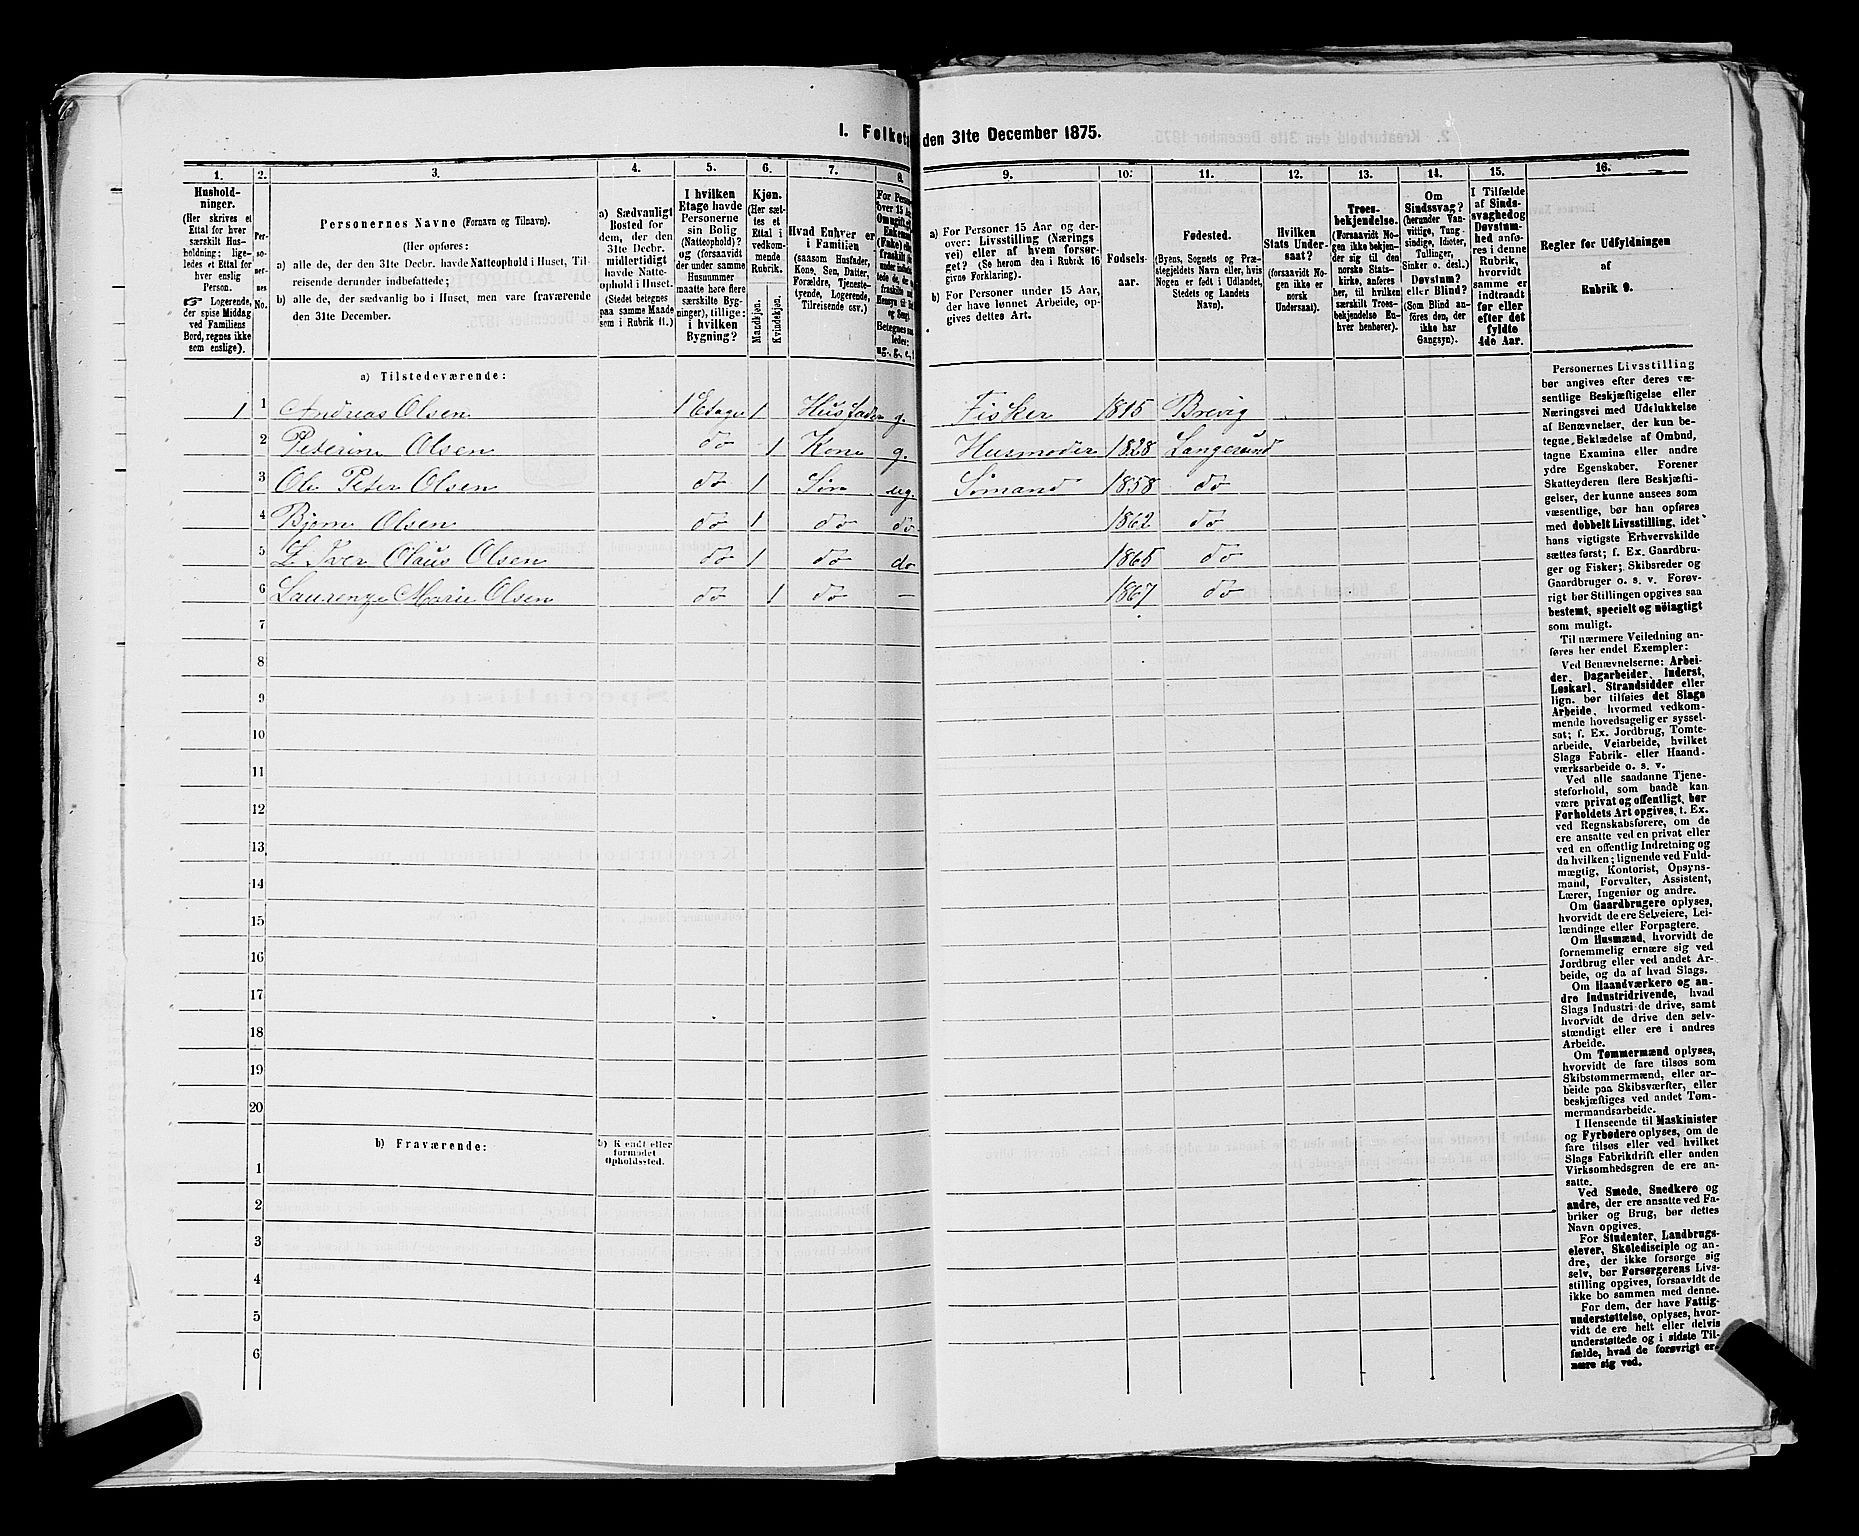 I. Folketæ den 31te December 1875.
1.
2.
3.
4.
5.
6.
7.
8.
9.
10.
11.
12.
13.
14.
15.
16.
Hushold-
ninger.
(Her skrives et
Ettal for hver
særskilt Hus-
holdning; lige-
ledes et Ettal for
hver enslig
Person.
☞ Logerende,
der spise Middag
ved Familiens
Bord, regnes ikke
som enslige).
Per-
so-
ner-
nes
No.
Personernes Navne (Fornavn og Tilnavn).
(Her opføres:
a) alle de, der den 31te Decbr. havde Natteophold i Huset, Til-
reisende derunder indbefattede;
b) alle de, der sædvanlig bo i Huset, men vare fraværende
den 31te December.
a) Sædvanligt
Bosted for
dem, der den
31te Decbr.
midlertidigt
havde Natte-
ophold i Huset.
(Stedet betegnes
paa samme Maade
som i Rubrik 11.)
I hvilken
Etage havde
Personerne
sin Bolig
(Natteophold)?
og (forsaavidt
der under samme
Husnummer
maatte høre flere
særskilte Byg-
ninger), tillige:
i hvilken
Bygning?
Kjøn.
(Her sæt-
tes et
Ettal i
vedkom-
mende
Rubrik.
Mandkjøn.
Kvindekjøn.
Hvad Enhver er
i Familien
(saasom Husfader,
Kone, Søn, Datter,
Forældre, Tjeneste-
tyende, Logerende,
Tilreisende osv.)
a) For Personer 15 Aar og der-
over: Livsstilling (Nærings
vei) eller af hvem forsør-
get? (Se herom den i Rubrik 16
givne Forklaring).
b) For Personer under 15 Aar,
der have lønnet Arbeide, op-
gives dettes Art.
Fødsels-
aar.
Fødested.
(Byens, Sognets og Præ-
stegjeldets Navn eller, hvis
Nogen er født i Udlandet,
Stedets og Landets
Navn).
Hvilken
Stats Under-
saat?
(forsaavidt No-
gen ikke er
norsk
Undersaat).
Troes-
bekjendelse.
(Forsaavidt No-
gen ikke bekjen-
der sig til den
norske Stats-
kirke, anføres
her, til hvilken
særskilt Troes-
bekjendelse En-
hver henhører).
Om
Sindssvag?
(herunder Van-
vittige, Tung-
sindige, Idioter,
Tullinger,
Sinker o. desl.)
Døvstum?
eller Blind?
(Som Blind an-
føres den, der
ikke har
Gangsyn).
I Tilfælde
af Sinds-
svaghed og
Døvstum-
hed anfø-
res i denne
Rubrik,
hvorvidt
samme er
indtraadt
før eller
efter det
fyldte
4de Aar.
Regler for Udfyldningen
af
Rubrik 9.
a) Tilstedeværende:
1 1 Andreas Olsen 1 Etage 1 Husfader g. Fisker 1815 Brevig
2 Peterine Olsen do 1 Kone g. Husmoder 1828 Langesund
3 Ole Peter Olsen do 1 Søn ug. Sømand 1858 do
4 Bjørn Olsen do 1 do do 1862 do
5 L. Iver Olaus Olsen do 1 do do 1865 do
6 Laurenze Marie Olsen do 1 do — 1867 do
7
8
9
10
11
12
13
14
15
16
17
18
19
20
b) Fraværende:
b) Kjendt eller
formodet
Opholdssted.
1
2
3
4
5
6
Personernes Livsstilling
bør angives efter deres væ-
sentlige Beskjæftigelse eller
Næringsvei med Udelukkelse
af Benævnelser, der kun be-
tegne Beklædelse af Ombud,
tagne Examina eller andre
ydre Egenskaber. Forener
Skatteyderen flere Beskjæfti-
gelser, der kunne ansees som
væsentlige, bør han opføres
med dobbelt Livsstilling, idet
hans vigtigste Erhvervskilde
sættes først; f. Ex. Gaardbru-
ger og Fisker; Skibsreder og
Gaardbruger o. s. v. Forøv-
rigt bør Stillingen opgives saa
bestemt, specielt og nøiagtigt
som muligt.
Til nærmere Veiledning an-
føres her endel Exempler:
Ved Benævnelserne: Arbei-
der, Dagarbeider, Inderst,
Løskarl, Strandsidder eller
lign. bør tilføies det Slags
Arbeide, hvormed vedkom-
mende hovedsagelig er syssel-
sat; f. Ex. Jordbrug, Tomte-
arbeide, Veiarbeide, hvilket
Slags Fabrik- eller Haand-
værksarbeide o. s. v.
Ved alle saadanne Tjene-
steforhold, som baade kan
være privat og offentligt, bør
Forholdets Art opgives, t. Ex.
ved Regnskabsførere, om de
ere ansatte ved en privat eller
ved en offentlig Indretning og
da hvilken; lignende ved Fuld-
mægtig, Kontorist, Opsyns-
mand, Forvalter, Assistent,
Lærer, Ingeniør og andre.
Om Gaardbrugere oplyses,
hvorvidt de ere Selveiere, Lei-
lændinge eller Forpagtere.
Om Husmænd, hvorvidt de
fornemmelig ernære sig ved
Jordbrug eller ved andet Ar-
beide, og da af hvad Slags.
Om Haandværkere og an-
dre Industridrivende, hvad
Slags Industri de drive, samt
hvorvidt de drive den selv-
stændigt eller ere i andres
Arbeide.
Om Tømmermænd oplyses,
hvorvidt de fare tilsøs som
Skibstømmermænd, eller ar-
beide paa Skibsværfter, eller
beskjæftiges ved andet Tøm-
mermandsarbeide.
I Henseende til Maskinister
og Fyrbødere oplyses, om de
fare tilsøs eller ved hvilket
Slags Fabrikdrift eller anden
Virksomhedsgren de ere an-
satte.
Ved Smede, Snedkere og
andre, der ere ansatte ved Fa-
briker og Brug, bør dettes
Navn opgives.
For Studenter, Landbrugs-
elever, Skoledisciple og an-
dre, der ikke forsørge sig
selv, bør Forsørgerens Livs-
stilling opgives, forsaavidt de
ikke bo sammen med denne.
For dem, der have Fattig-
understøttelse, oplyses, hvor-
vidt de ere helt eller delvis
understøttede og i sidste Til-
fælde, hvad de forøvrigt er-
nære sig ved.